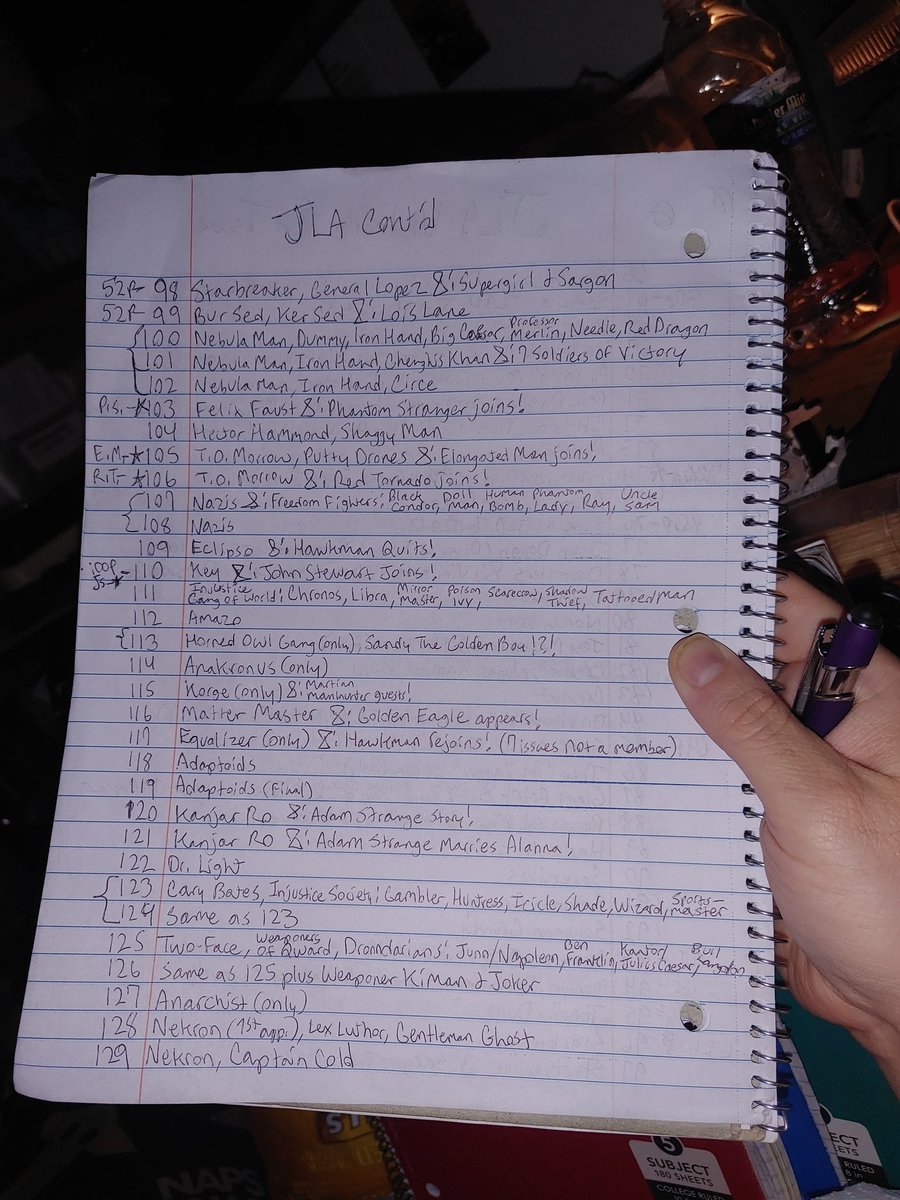 JLA Cont'd
52P- 98 Starbreaker, General Lopez &: Supergirl & Sargon
52P- 99 Bur Sed, Ker Sed &: Lois Lane
100 Nebula Man, Dummy, Iron Hand, Big Caesar, Professor Merlin, Needle, Red Dragon
101 Nebula Man, Iron Hand, Chenghis Khan &: 7 Soldiers of Victory
102 Nebula Man, Iron Hand, Circe
P.S.-★103 Felix Faust &: Phantom Stranger joins!
104 Hector Hammond, Shaggy Man
E.M-★105 T.O. Morrow, Putty Drones &: Elongated Man joins!
R.T-★106 T.O. Morrow &: Red Tornado joins!
107 Nazis &: Freedom Fighters: Black Condor, Doll Man, Human Bomb, Phantom Lady, Ray, Uncle Sam
108 Nazis
109 Eclipso &: Hawkman Quits!
110 Key &: John Stewart Joins!
111 Injustice Gang of World: Chronos, Libra, Mirror Master, Poison Ivy, Scarecrow, Shadow Thief, Tattooed Man
112 Amazo
113 Horned Owl Gang (only), Sandy The Golden Boy!?!
114 Anakronus (only)
115 Korge (only) &: Martian Manhunter guests!
116 Matter Master &: Golden Eagle appears!
117 Equalizer (only) &: Hawkman rejoins! (7 issues not a member)
118 Adaptoids
119 Adaptoids (Final)
120 Kanjar Ro &: Adam Strange Story!
121 Kanjar Ro &: Adam Strange Marries Alanna!
122 Dr. Light
123 Cary Bates, Injustice Society: Gambler, Huntress, Icicle, Shade, Wizard, Sports-master
124 Same as 123
125 Two-Face, Weaponers of Qward, Dronndarians: Junn/Napoleon, Ben Franklin, Kantor/Julius Caesar,
126 Same as 125 plus Weaponer Kiman & Joker
127 Anarchist (only)
128 Nekron (1st app.), Lex Luthor, Gentleman Ghost
129 Nekron, Captain Cold
NAPS
5
SUBJECT
180 SHEETS
COLLEGE RULED